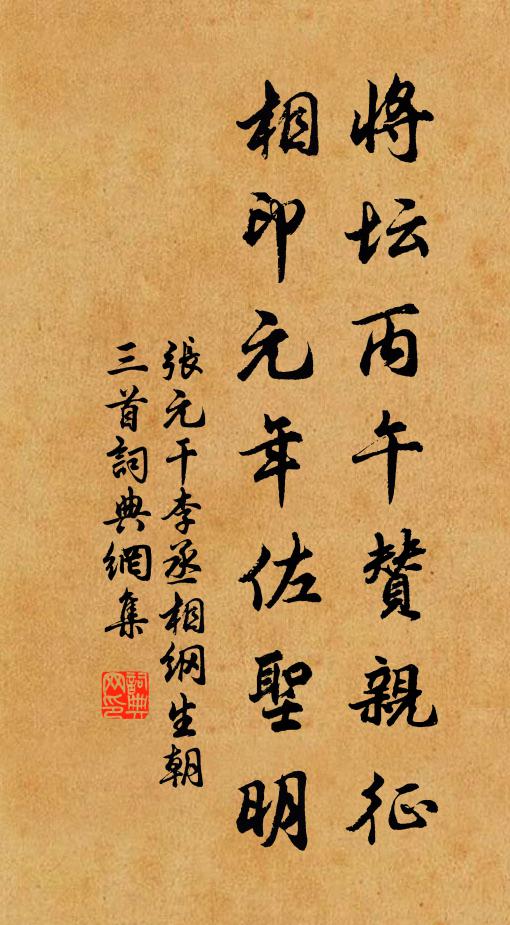 将坛丙午赞親征
相印元年佐聖明
張元干李丞相纲生朝
三首詞典網集
詞典网印